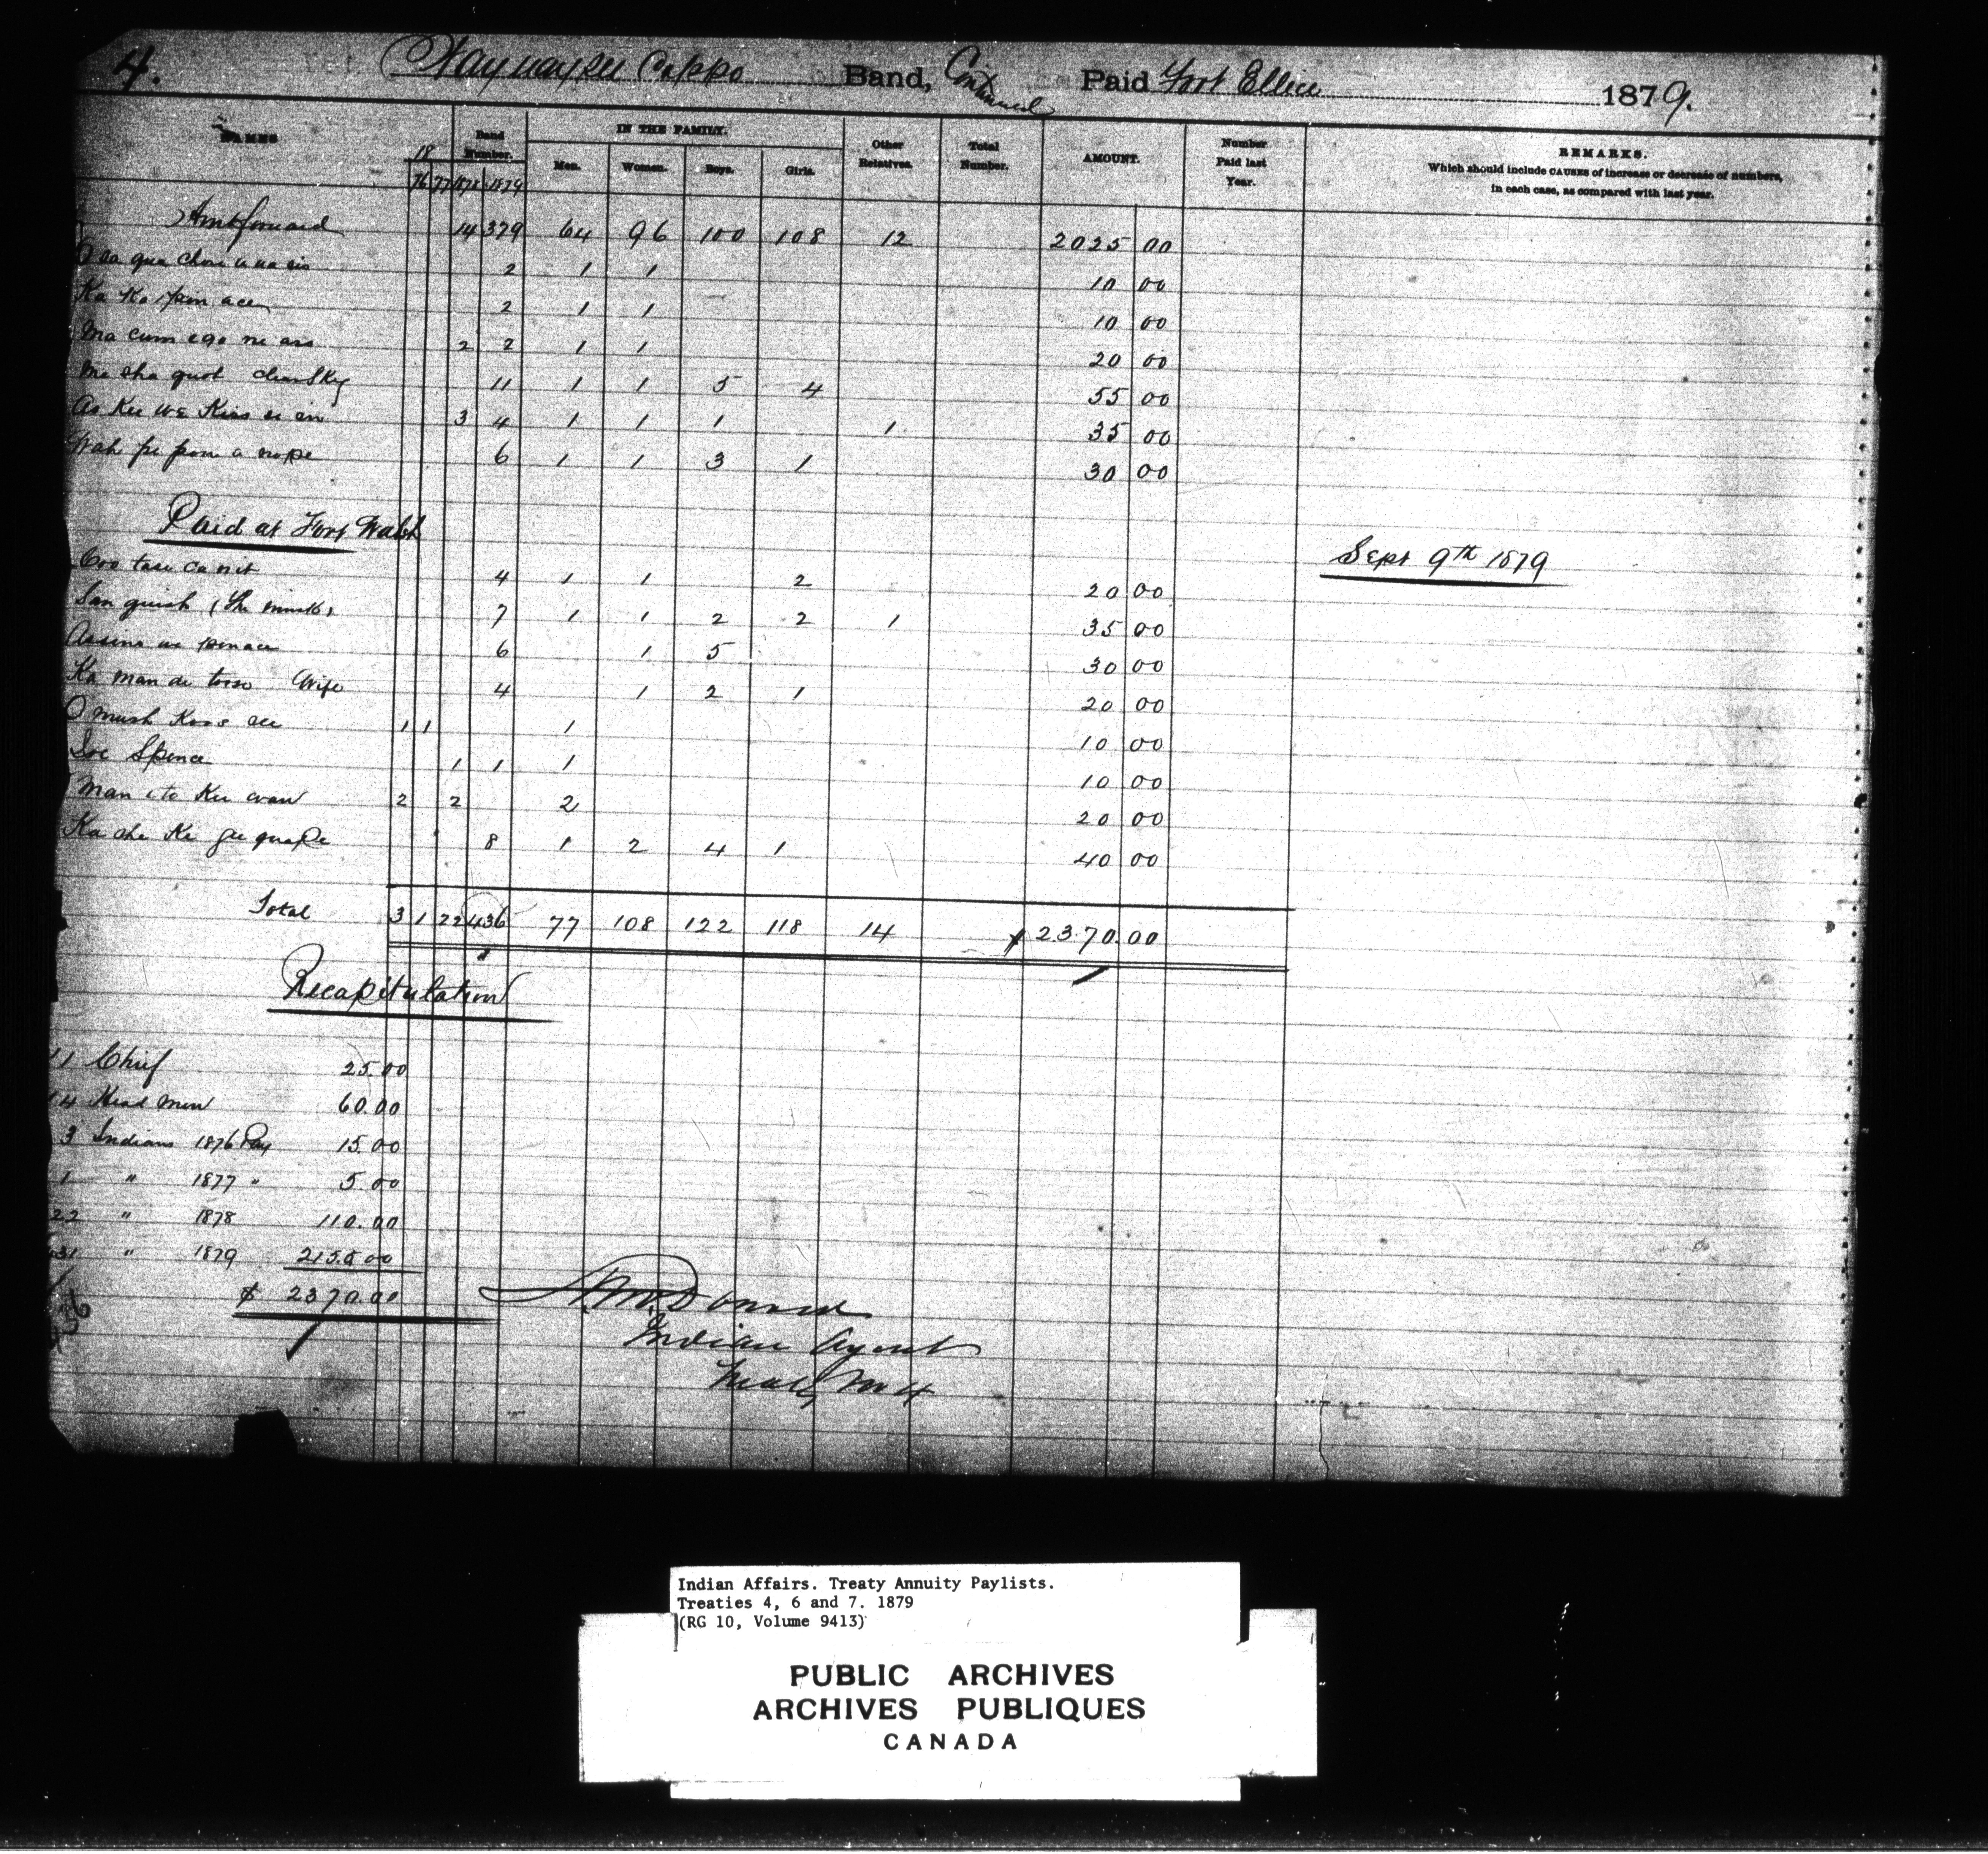 4. Waywaysee Cappo Band, Continued Paid Fort Ellice 1879.
NAMES 18 Band Number. IN THE FAMILY. Other Relatives. Total Number. AMOUNT. Number Paid last Year. REMARKS.
Which should include CAUSES of increase or decrease of numbers, in each case, as compared with last year.
76 77 1878 1879 Men. Women. Boys. Girls.
Amt forward 14 379 64 96 100 108 12 2025 00
2 1 1 10 00
Ka Ka pin ace 2 1 1 10 00
Ma cum ego ne ass 2 2 1 1 20 00
Me sha quot Clear Sky 11 1 1 5 4 55 00
As Kee we Kees ee in 3 4 1 1 1 1 35 00
Wah pe pom a nope 6 1 1 3 1 30 00
Paid at Fort Walsh Sept 9th 1879
Coo tase ca nit 4 1 1 2 20 00
San quish (The mink) 7 1 1 2 2 1 35 00
Assine we pinace 6 1 5 30 00
Ka man de toose Wife 4 1 2 1 20 00
O mush Koos ee 1 1 1 10 00
Joe Spence 1 1 1 10 00
Man i to Kee wan 2 2 2 20 00
Ka she Ke gee quape 8 1 2 4 1 40 00
Total 3 1 22 436 77 108 122 118 14 $ 2370.00
Recapitulation
1 Chief 25.00
4 Head men 60.00
3 Indians 1876 Pay 15.00
1 " 1877 " 5.00
22 " 1878 110.00
431 " 1879 2155.00
436 $ 2370.00
A. McDonald
Indian Agent
Treaty No 4
Indian Affairs. Treaty Annuity Paylists.
Treaties 4, 6 and 7. 1879
(RG 10, Volume 9413)
PUBLIC ARCHIVES
ARCHIVES PUBLIQUES
CANADA